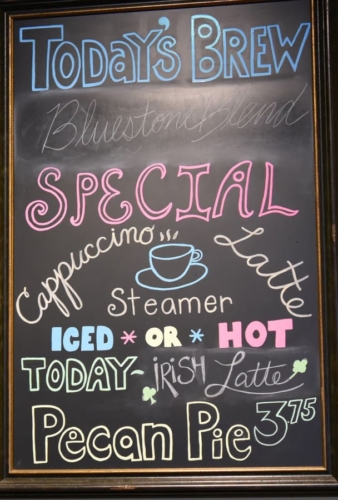 Today's Brew
Bluestone Blend
SPECIAL
Cappuccino Latte
Steamer
ICED * OR * HOT
TODAY~ IRISH Latte
Pecan Pie 3.75